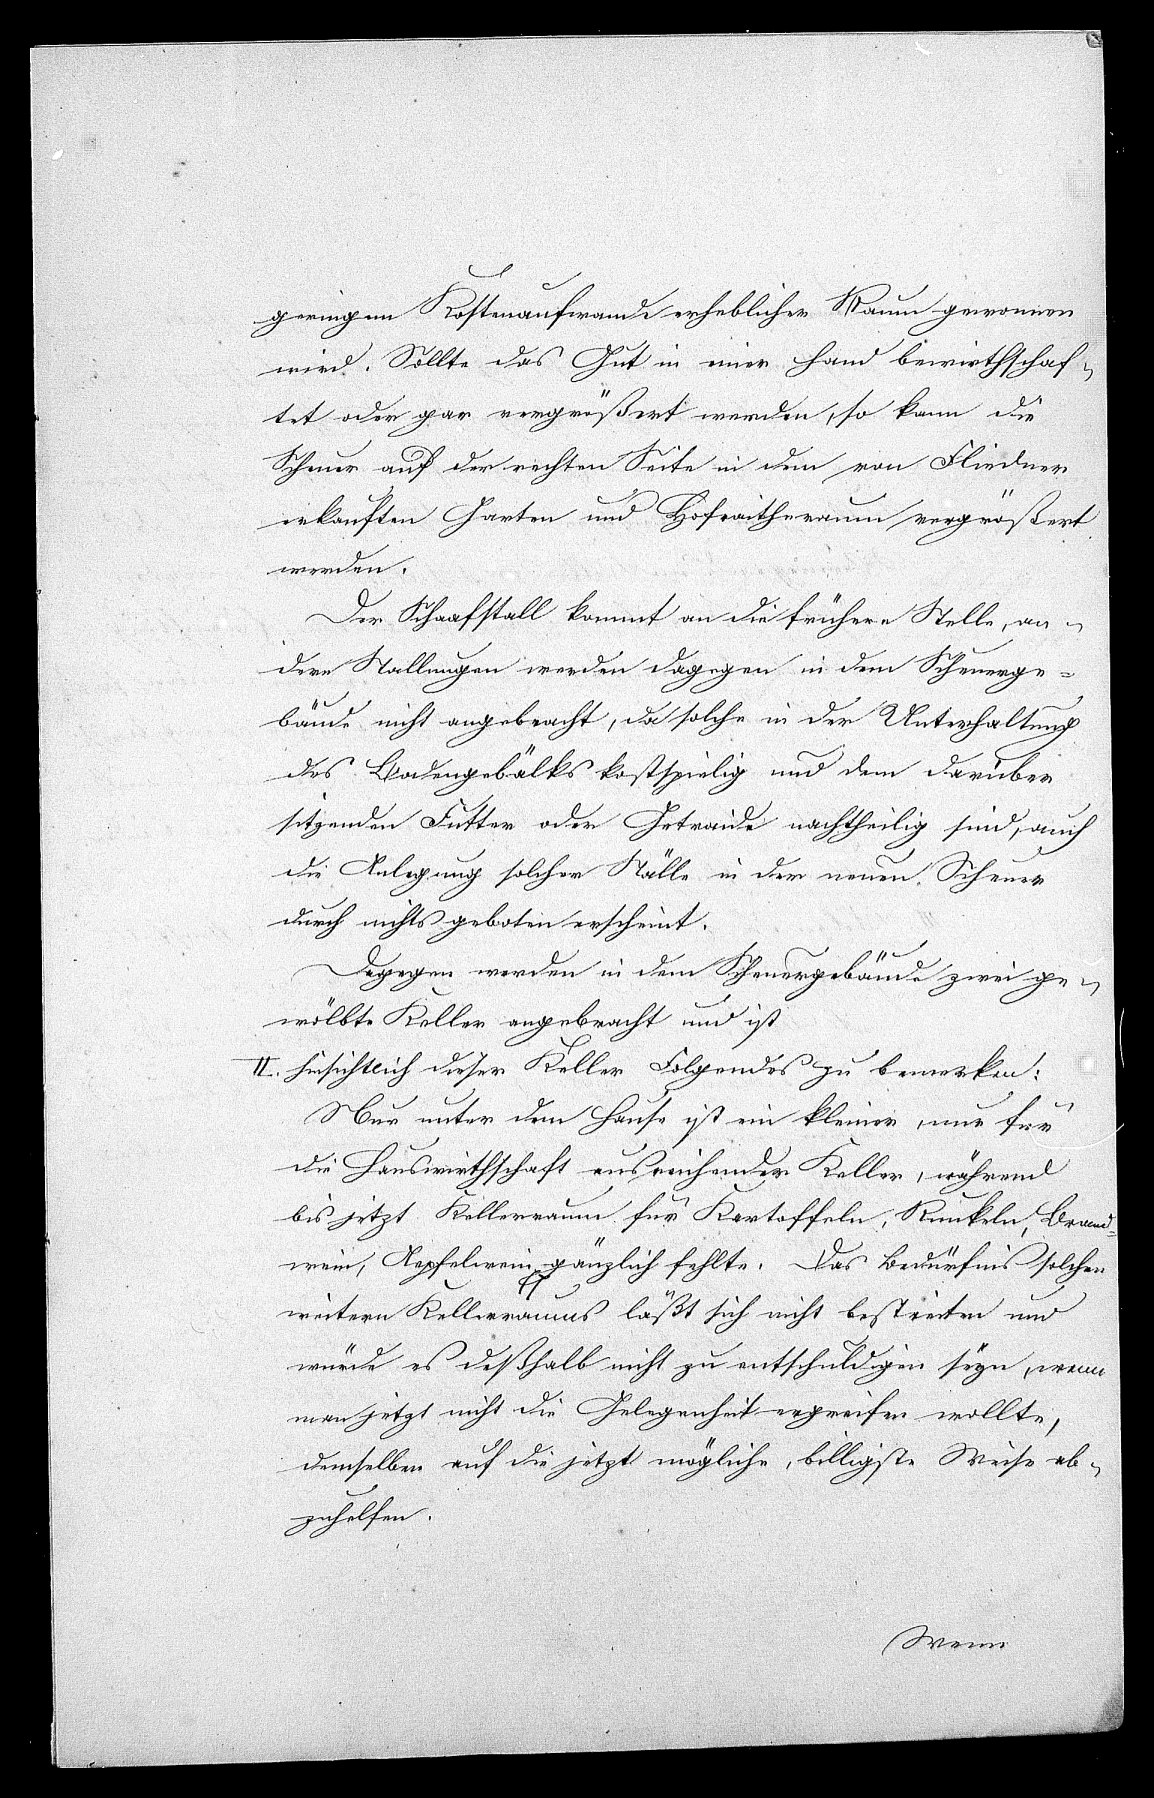 geringem Kostenaufwande erheblicher Raum gewonnen
wird. Sollte das Gut in einer Hand bewirthschaf-
tet oder gar vergrößert werden, so kann die
Scheuer auf der rechten Seite in dem von Fliedner
erkauften Garten und Hofraitheraum vergrößert
werden.
Der Schaafstall kommt an die frühere Stelle, an-
dere Stallungen werden dagegen in dem Scheuerge=
bäude nicht angebracht, da solche in der Unterhaltung
des Bodengebälks kostspielig und dem darüber
sitzenden Futter oder Getraide nachtheilig sind, auch
die Anlegung solcher Ställe in der neuen Scheuer
durch nichts geboten erscheint.
Dagegen werden in dem Scheuergebäude zwei ge-
wölbte Keller angebracht und ist
II. hinsichtlich dieser Keller Folgendes zu bemerken:
Nur unter dem Hause ist ein kleiner, nur für
die Hauswirthschaft ausreichender Keller, während
bis jetzt Kellerraum für Kartoffeln, Runkeln, Brand=
wein, Aepfelwein pp gänzlich fehlte. Das Bedürfnis solchen
weitern Kellerraums läßt sich nicht bestreiten und
würde es deßhalb nicht zu entschuldigen seyn, wenn
man jetzt nicht die Gelegenheit ergreifen wollte,
demselben auf die jetzt mögliche, billigste Weise ab-
zuhelfen.
Wenn